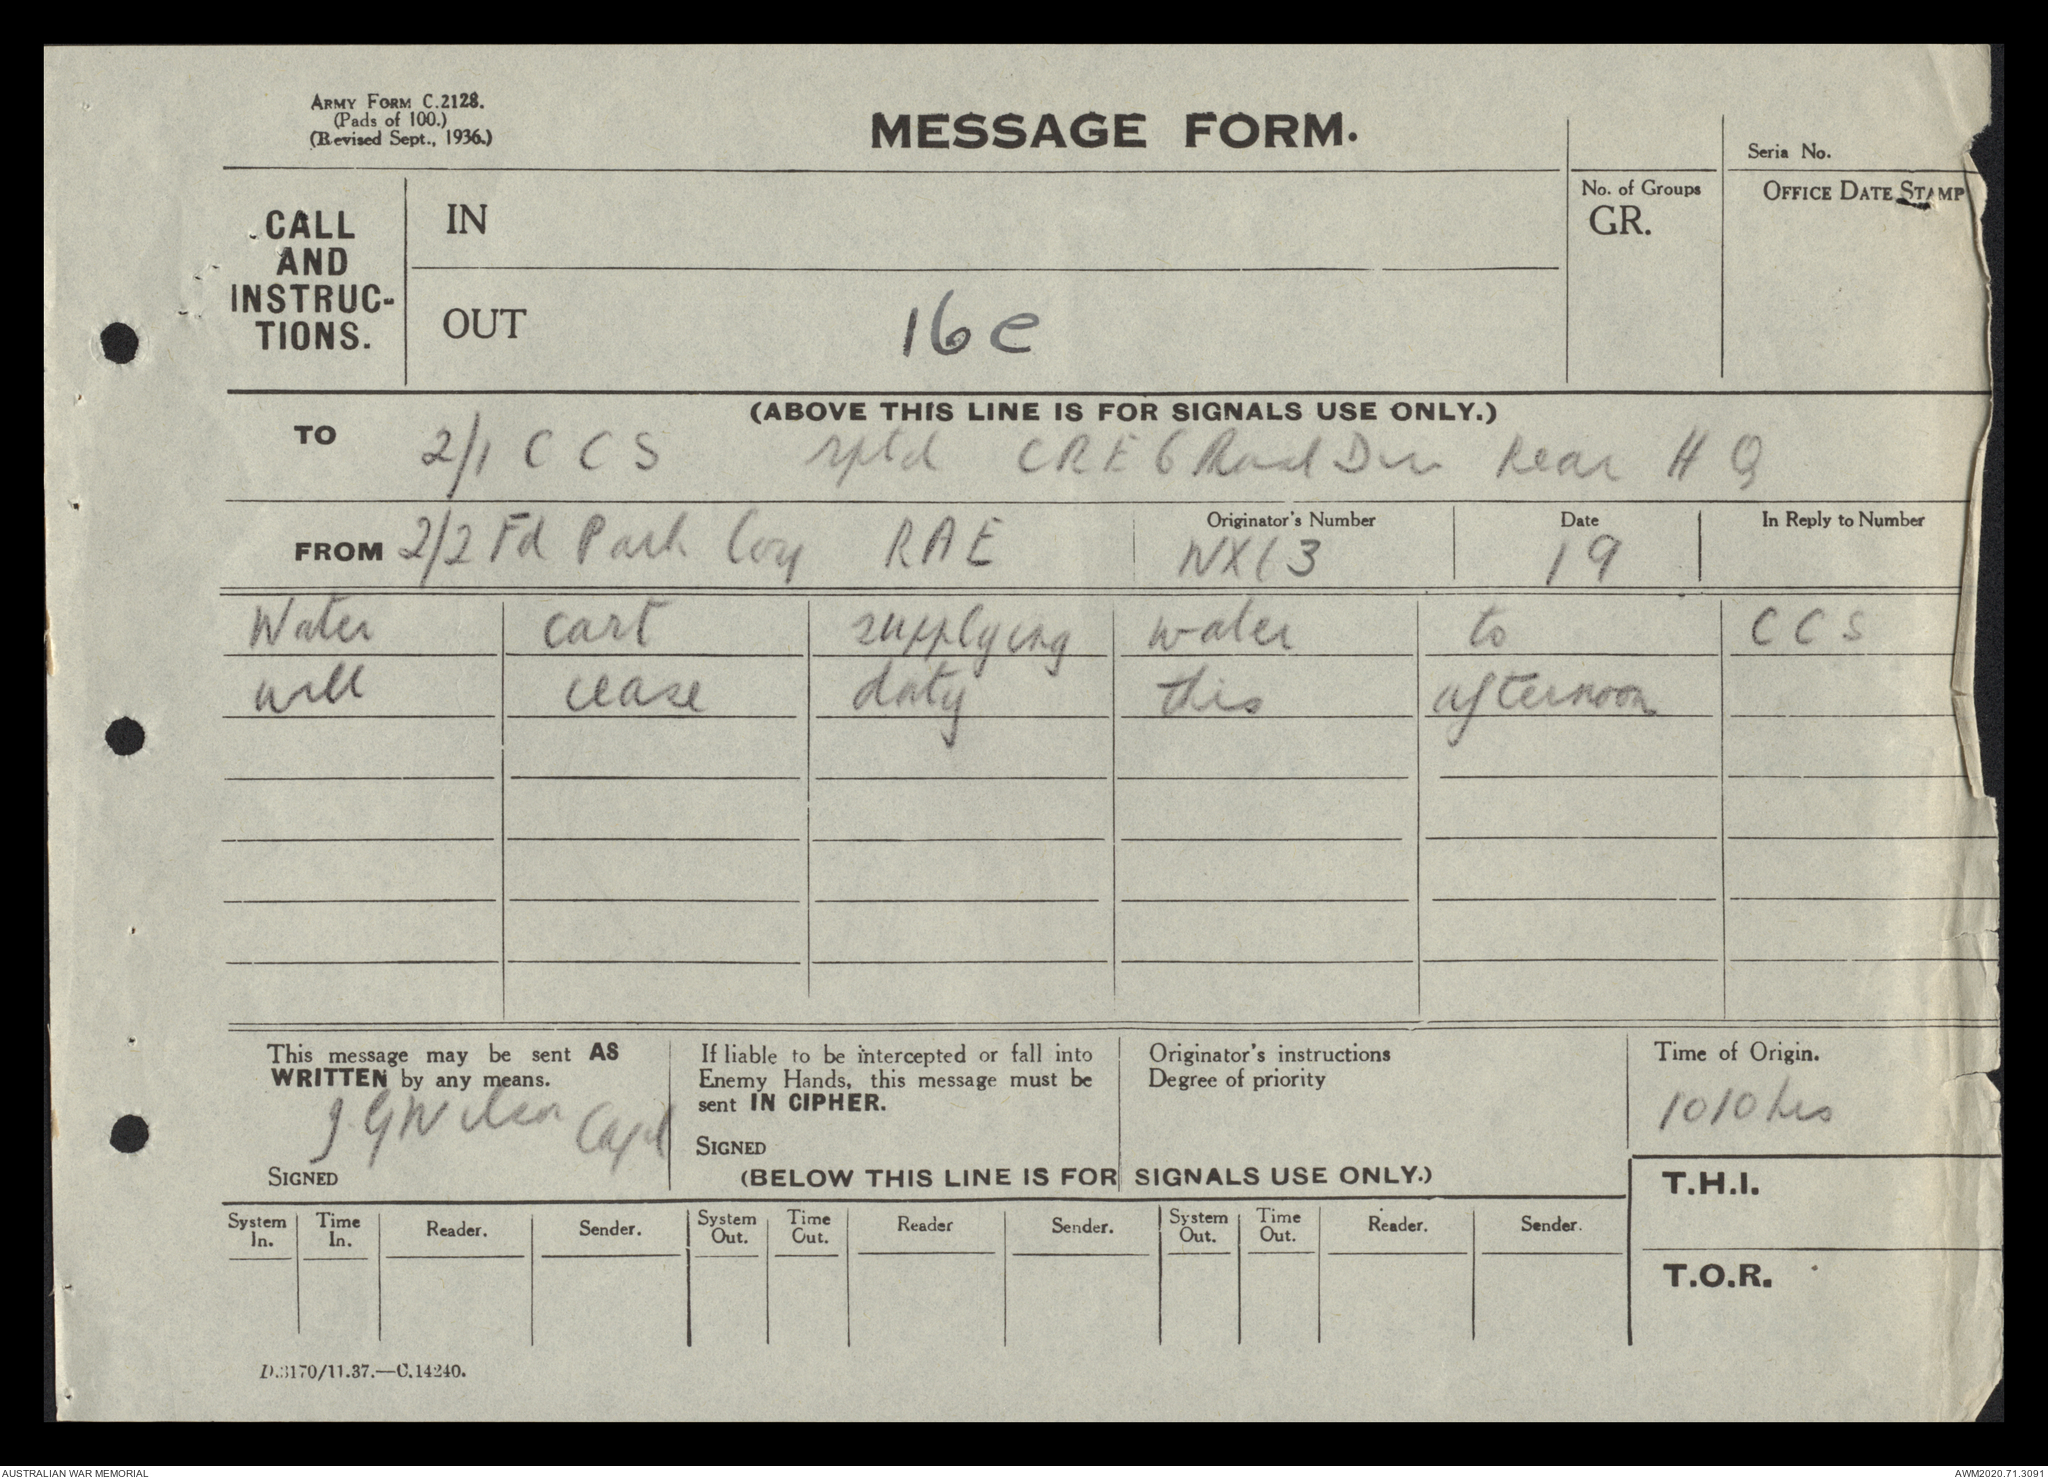 ARMY FORM C.2128.
(Pads of 100.)
(Revised Sept., 1936.)
MESSAGE FORM.
Seria No.
CALL
AND
INSTRUC-
TIONS.
IN
No. of Groups
GR.
OFFICE DATE STAMP
OUT
16 e
(ABOVE THIS LINE IS FOR SIGNALS USE ONLY.)
TO 2/1 C C S rptd CRE 6 Div Rear H Q
FROM 2/2 Fd Park Coy RAE
Originator's Number
Date
19
In Reply to Number
Water cart supplying water to CCS
will cease duty this afternoon
This message may be sent AS
WRITTEN by any means.
J. G Wilson Capt
SIGNED
If liable to be intercepted or fall into
Enemy Hands, this message must be
sent IN CIPHER.
SIGNED
Originator's instructions
Degree of priority
Time of Origin.
1010 hrs
(BELOW THIS LINE IS FOR SIGNALS USE ONLY.)
T.H.I.
T.O.R.
System In. Time In. Reader. Sender. System Out. Time Out. Reader Sender. System Out. Time Out. Reader. Sender.
D.3170/11.37.—C.14240.
AUSTRALIAN WAR MEMORIAL
AWM2020.71.3091